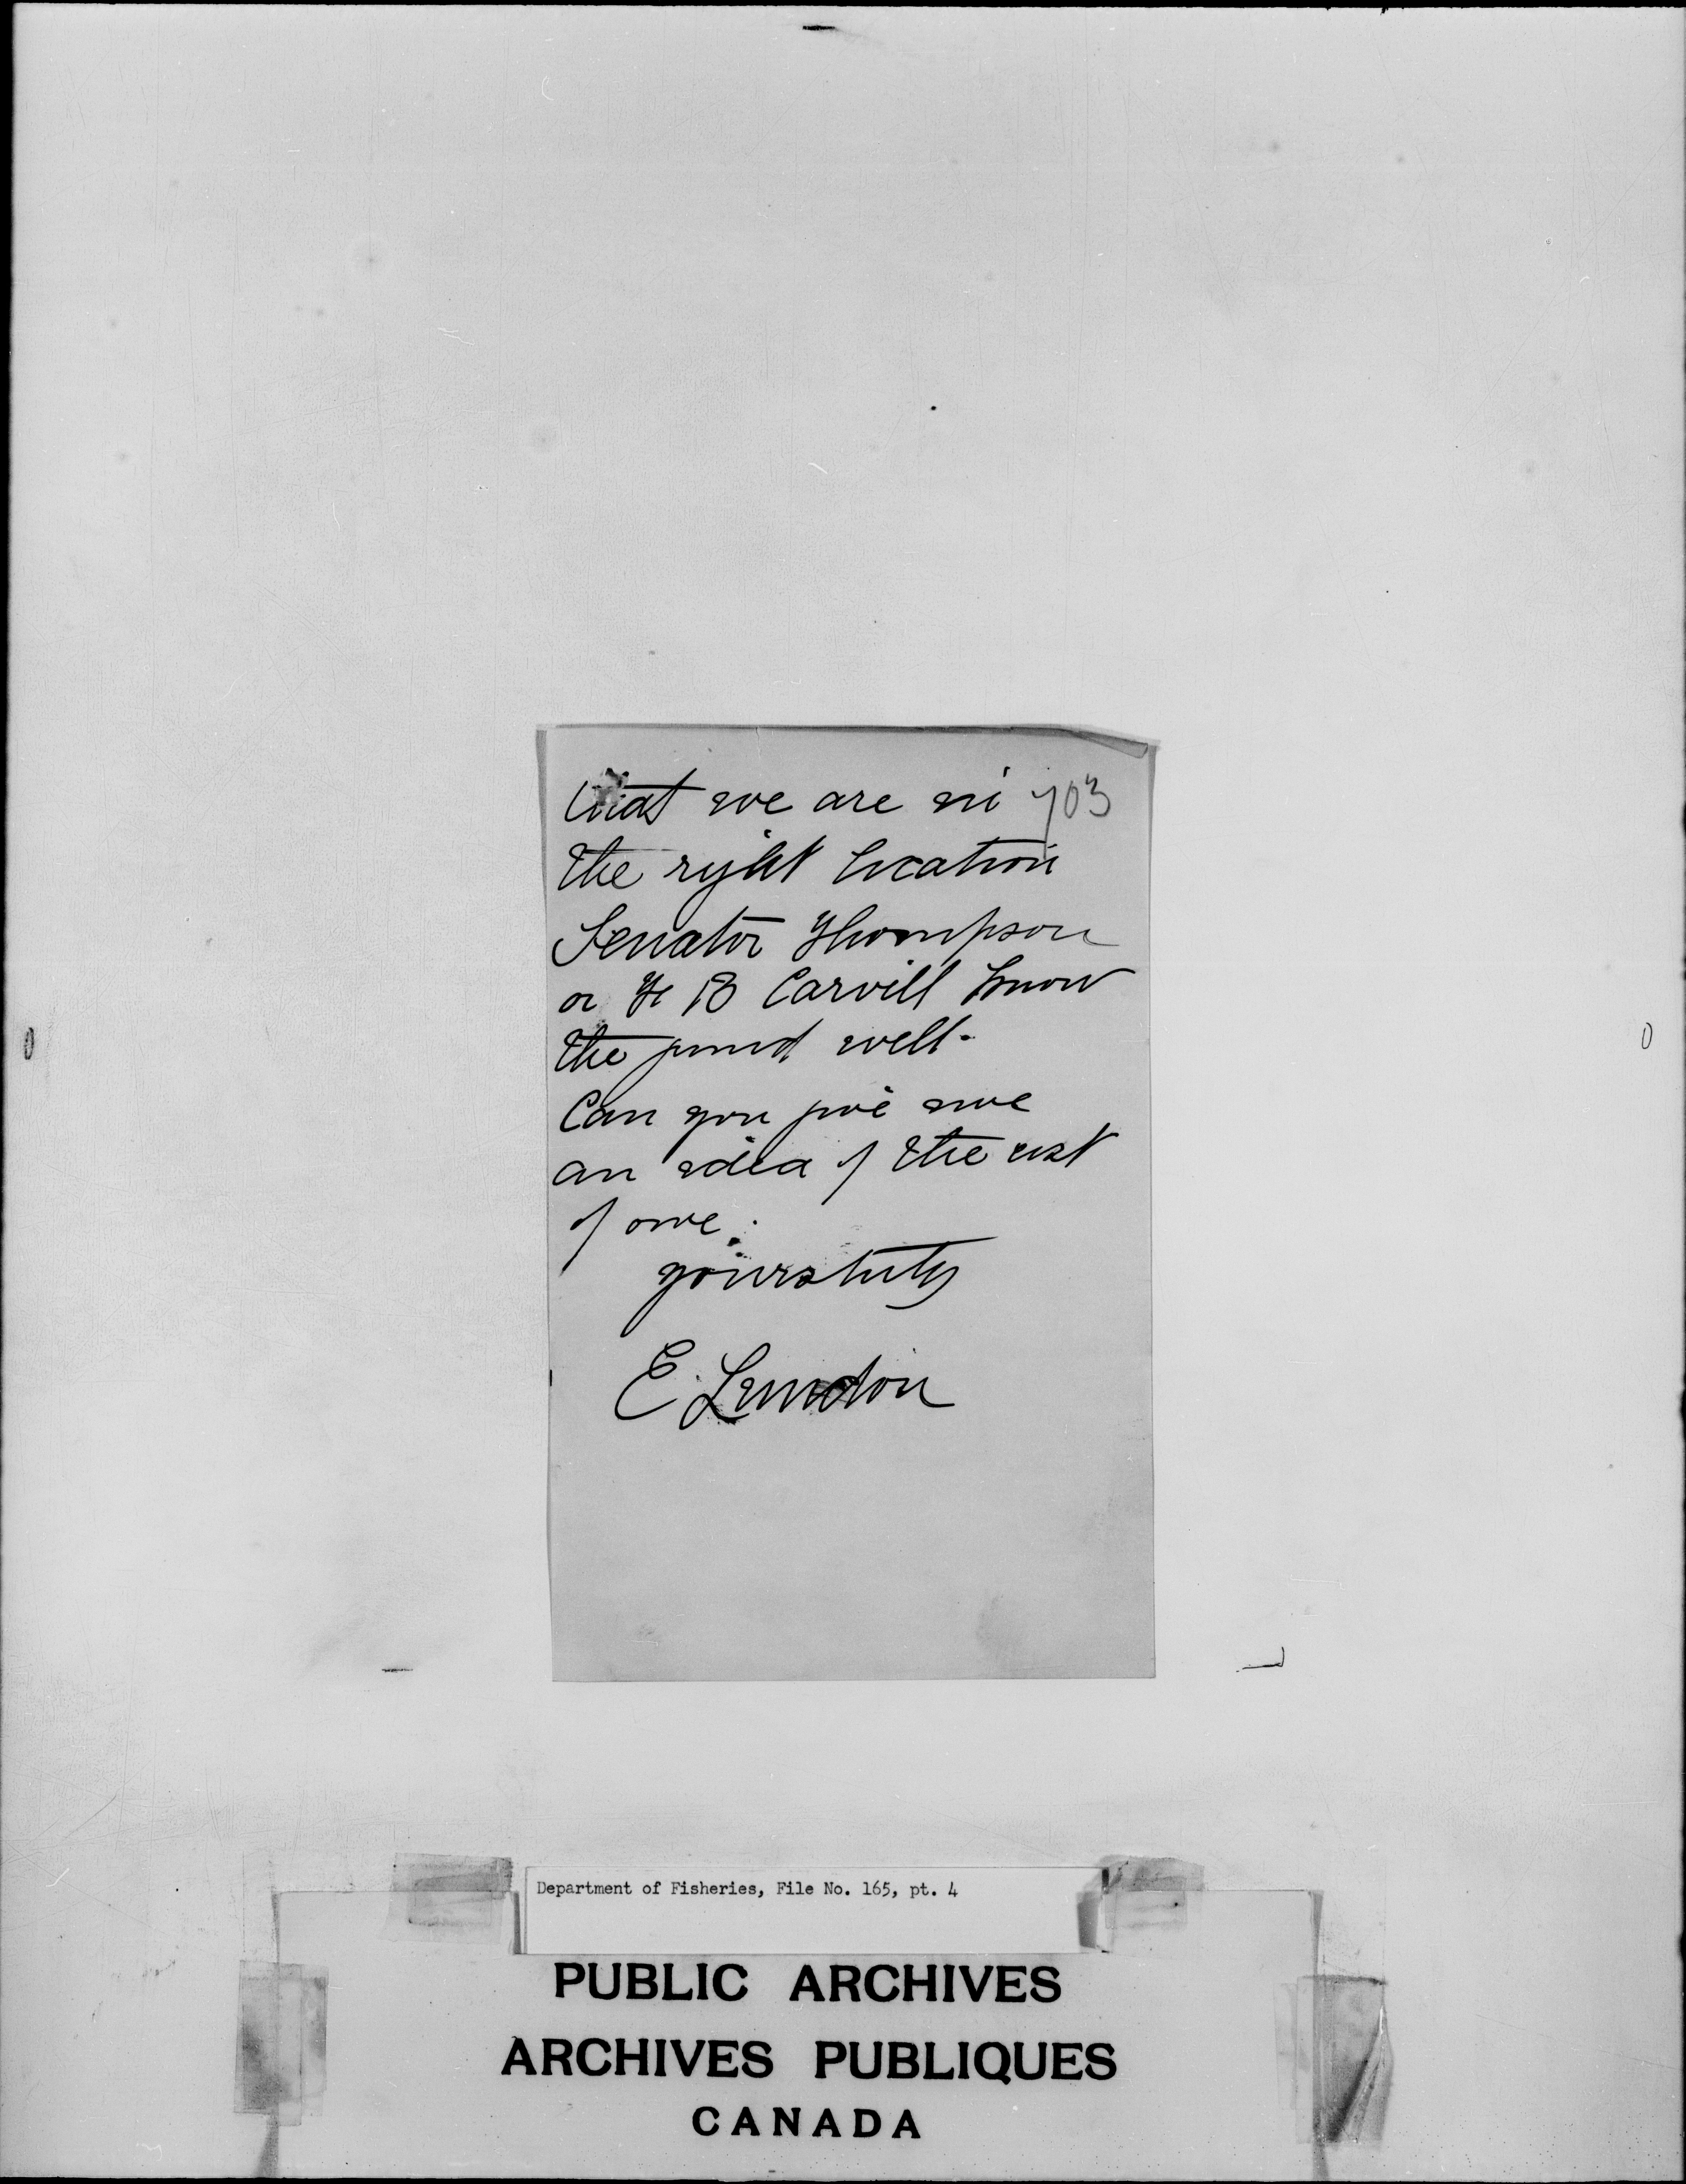 that we are in 703
the right location
Senator Thompson
or F B Carvill know
the pond well.
Can you give me
an idea of the cost
of one.
yours truly
E Lundon
Department of Fisheries, File No. 165, pt. 4
PUBLIC ARCHIVES
ARCHIVES PUBLIQUES
CANADA